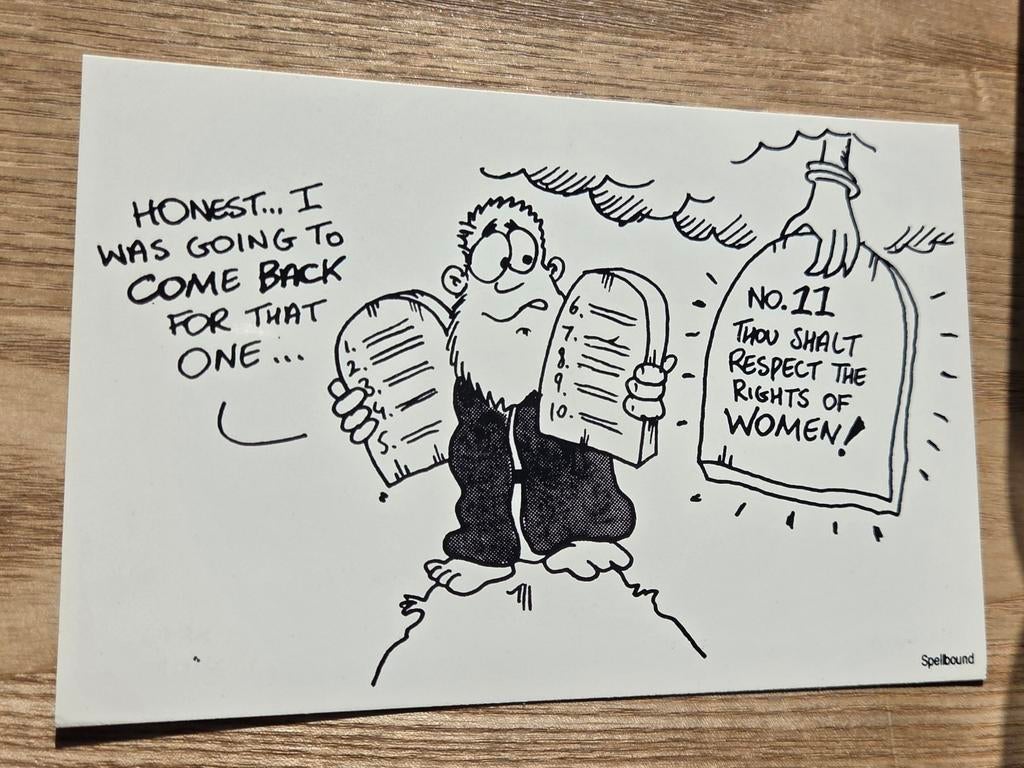 HONEST... I
WAS GOING TO
COME BACK
FOR THAT
ONE...
1.
2.
3.
4.
5.
6.
7.
8.
9.
10.
NO. 11
THOU SHALT
RESPECT THE
RIGHTS OF
WOMEN!
Spellbound